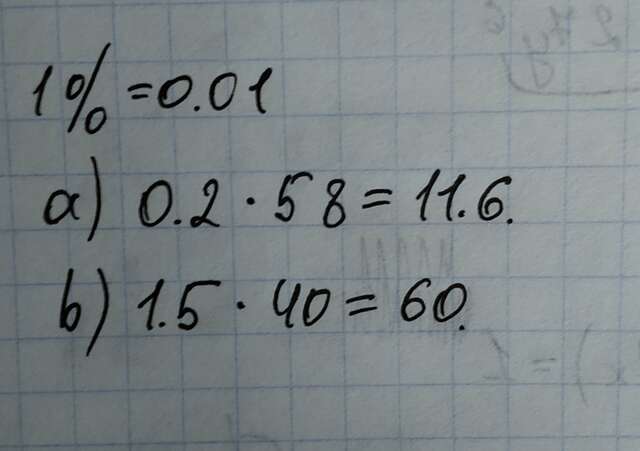 1% = 0.01
a) 0.2 · 58 = 11.6.
b) 1.5 · 40 = 60.